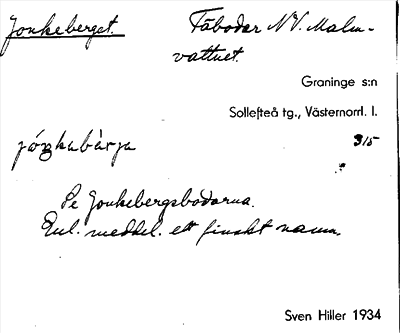 Jonkeberget. Fäbodar NV. Malm-
vattnet.
Graninge s:n
Sollefteå tg., Västernorrl. l.
315
Se Jonkebergsbodarna.
Enl. meddel. ett finskt namn.
Sven Hiller 1934